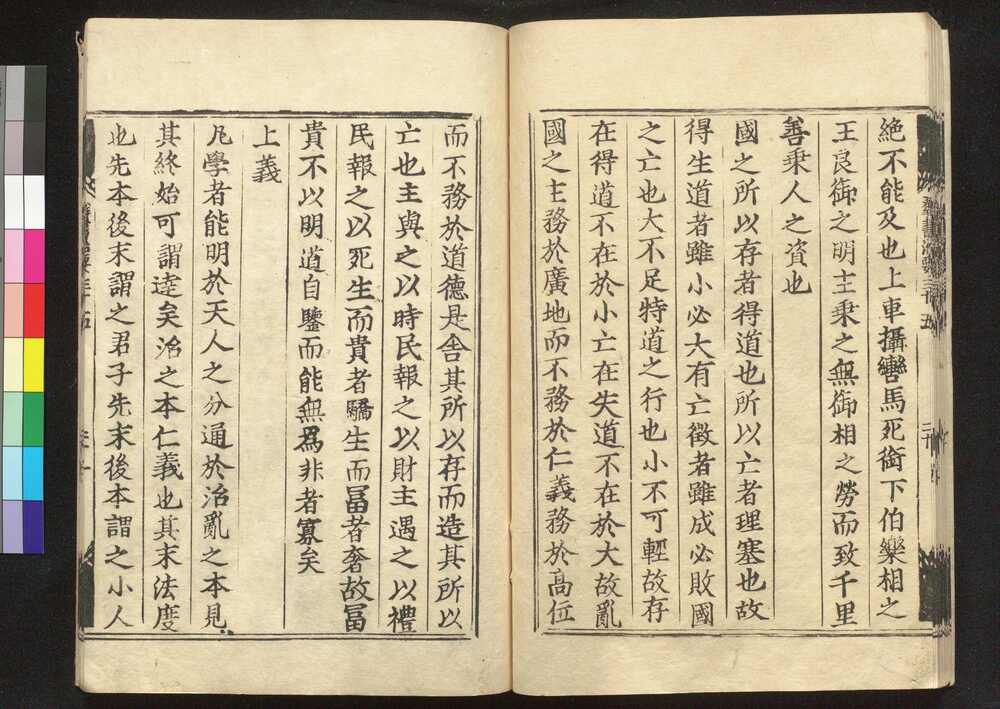 絶不能及也上車攝轡馬死銜下伯樂相之
王良御之明主乗之無御相之勞而致千里
善乗人之資也
國之所以存者得道也所以亡者理塞也故
得生道者雖小必大有亡徵者雖成必敗國
之亡也大不足特道之行也小不可輕故存
在得道不在於小亡在失道不在於大故亂
國之主務於廣地而不務於仁義務於高位
而不務於道德是舎其所以存而造其所以
亡也主與之以時民報之以財主遇之以禮
民報之以死生而貴者驕生而冨者奢故冨
貴不以明道自鑒而能無爲非者寡矣
上義
凡學者能明於天人之分通於治亂之本見
其終始可謂逹矣治之本仁義也其末法度
也先本後末謂之君子先末後本謂之小人